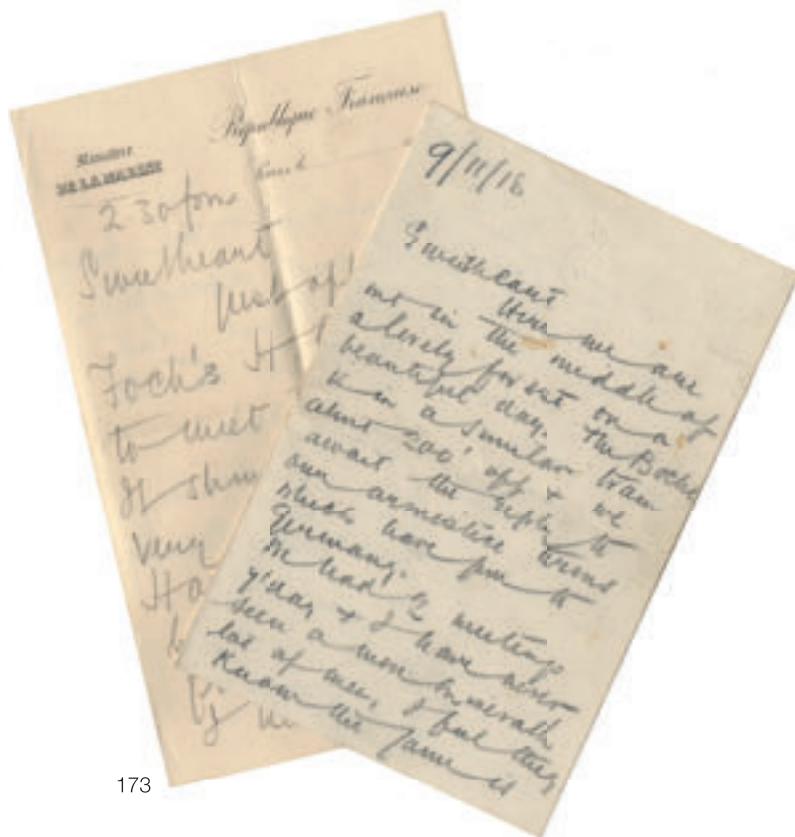 République Française
Ministère
DE LA MARINE
Paris, le
2 30 pm
Sweetheart
Just
Foch's H
to meet
It
very
Ha
9/11/18
Sweetheart
Here we are
out in the middle of
a lovely forest on a
beautiful day. The Boche
is in a similar train
about 200' off & we
await the reply to
our armistice terms
which have gone to
Germany.
We had 2 meetings
y'day & I have never
seen a more miserable
lot of men, I feel they
know the game is
173